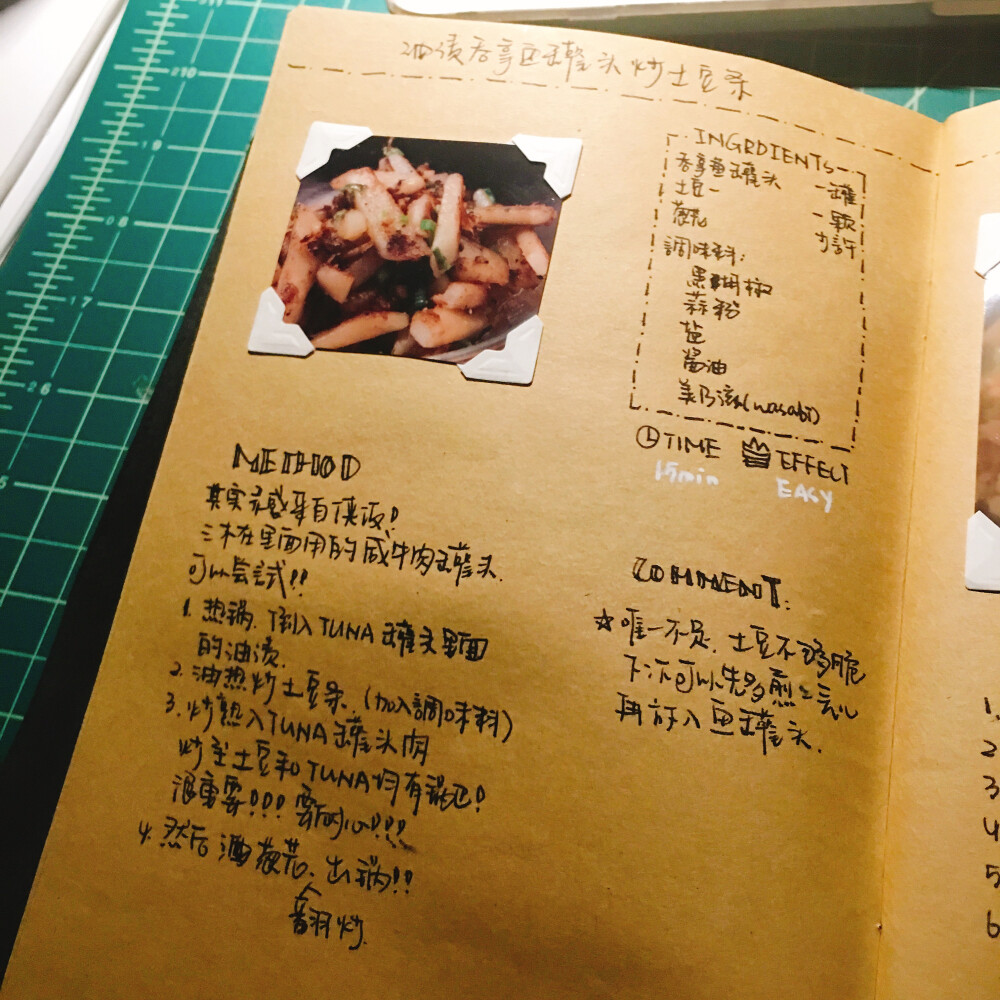 油渍吞拿鱼罐头炒土豆条
INGRDIENTS
吞拿鱼罐头 一罐
土豆 一颗
葱花 少許
調味料:
黑胡椒
蒜粉
盐
酱油
美乃滋(wasabi)
TIME EFFECT
15min EASY
METHOD
其实灵感来自侠饭!
三木在里面用的咸牛肉罐头.
可以尝試!!
1. 热锅. 倒入 TUNA 罐头里面
的油渍.
2. 油热炒土豆条. (加入調味料)
3. 炒熟入TUNA罐头肉
炒至土豆和TUNA均有
很重要!!! 要耐心!!!
4. 然后洒葱花. 出锅!!
翻炒
COMMENT:
☆唯一不足. 土豆不够脆
下次可以先多煎一会儿
再放入鱼罐头.
1.
2
3
4
5
6